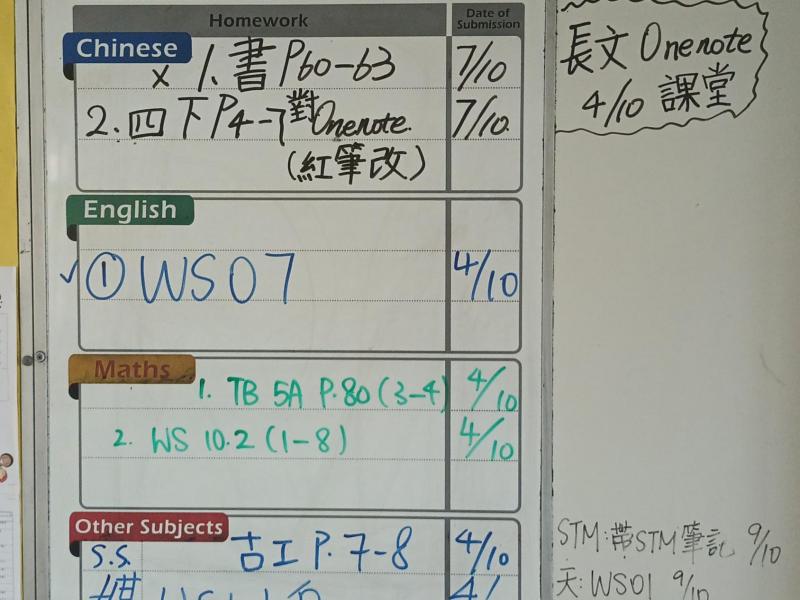 Homework Date of Submission
Chinese
x 1. 書 P60-63 7/10
2. 四下 P4-7 對 Onenote. 7/10.
(紅筆改)
English
✓ ① WS07 4/10
Maths
1. TB 5A P.80 (3-4) 4/10
2. WS 10.2 (1-8) 4/10
Other Subjects
S.S. 古工 P.7-8 4/10
長文 Onenote
4/10 課堂
STM: 帶STM筆記 9/10
天: WS01 9/10